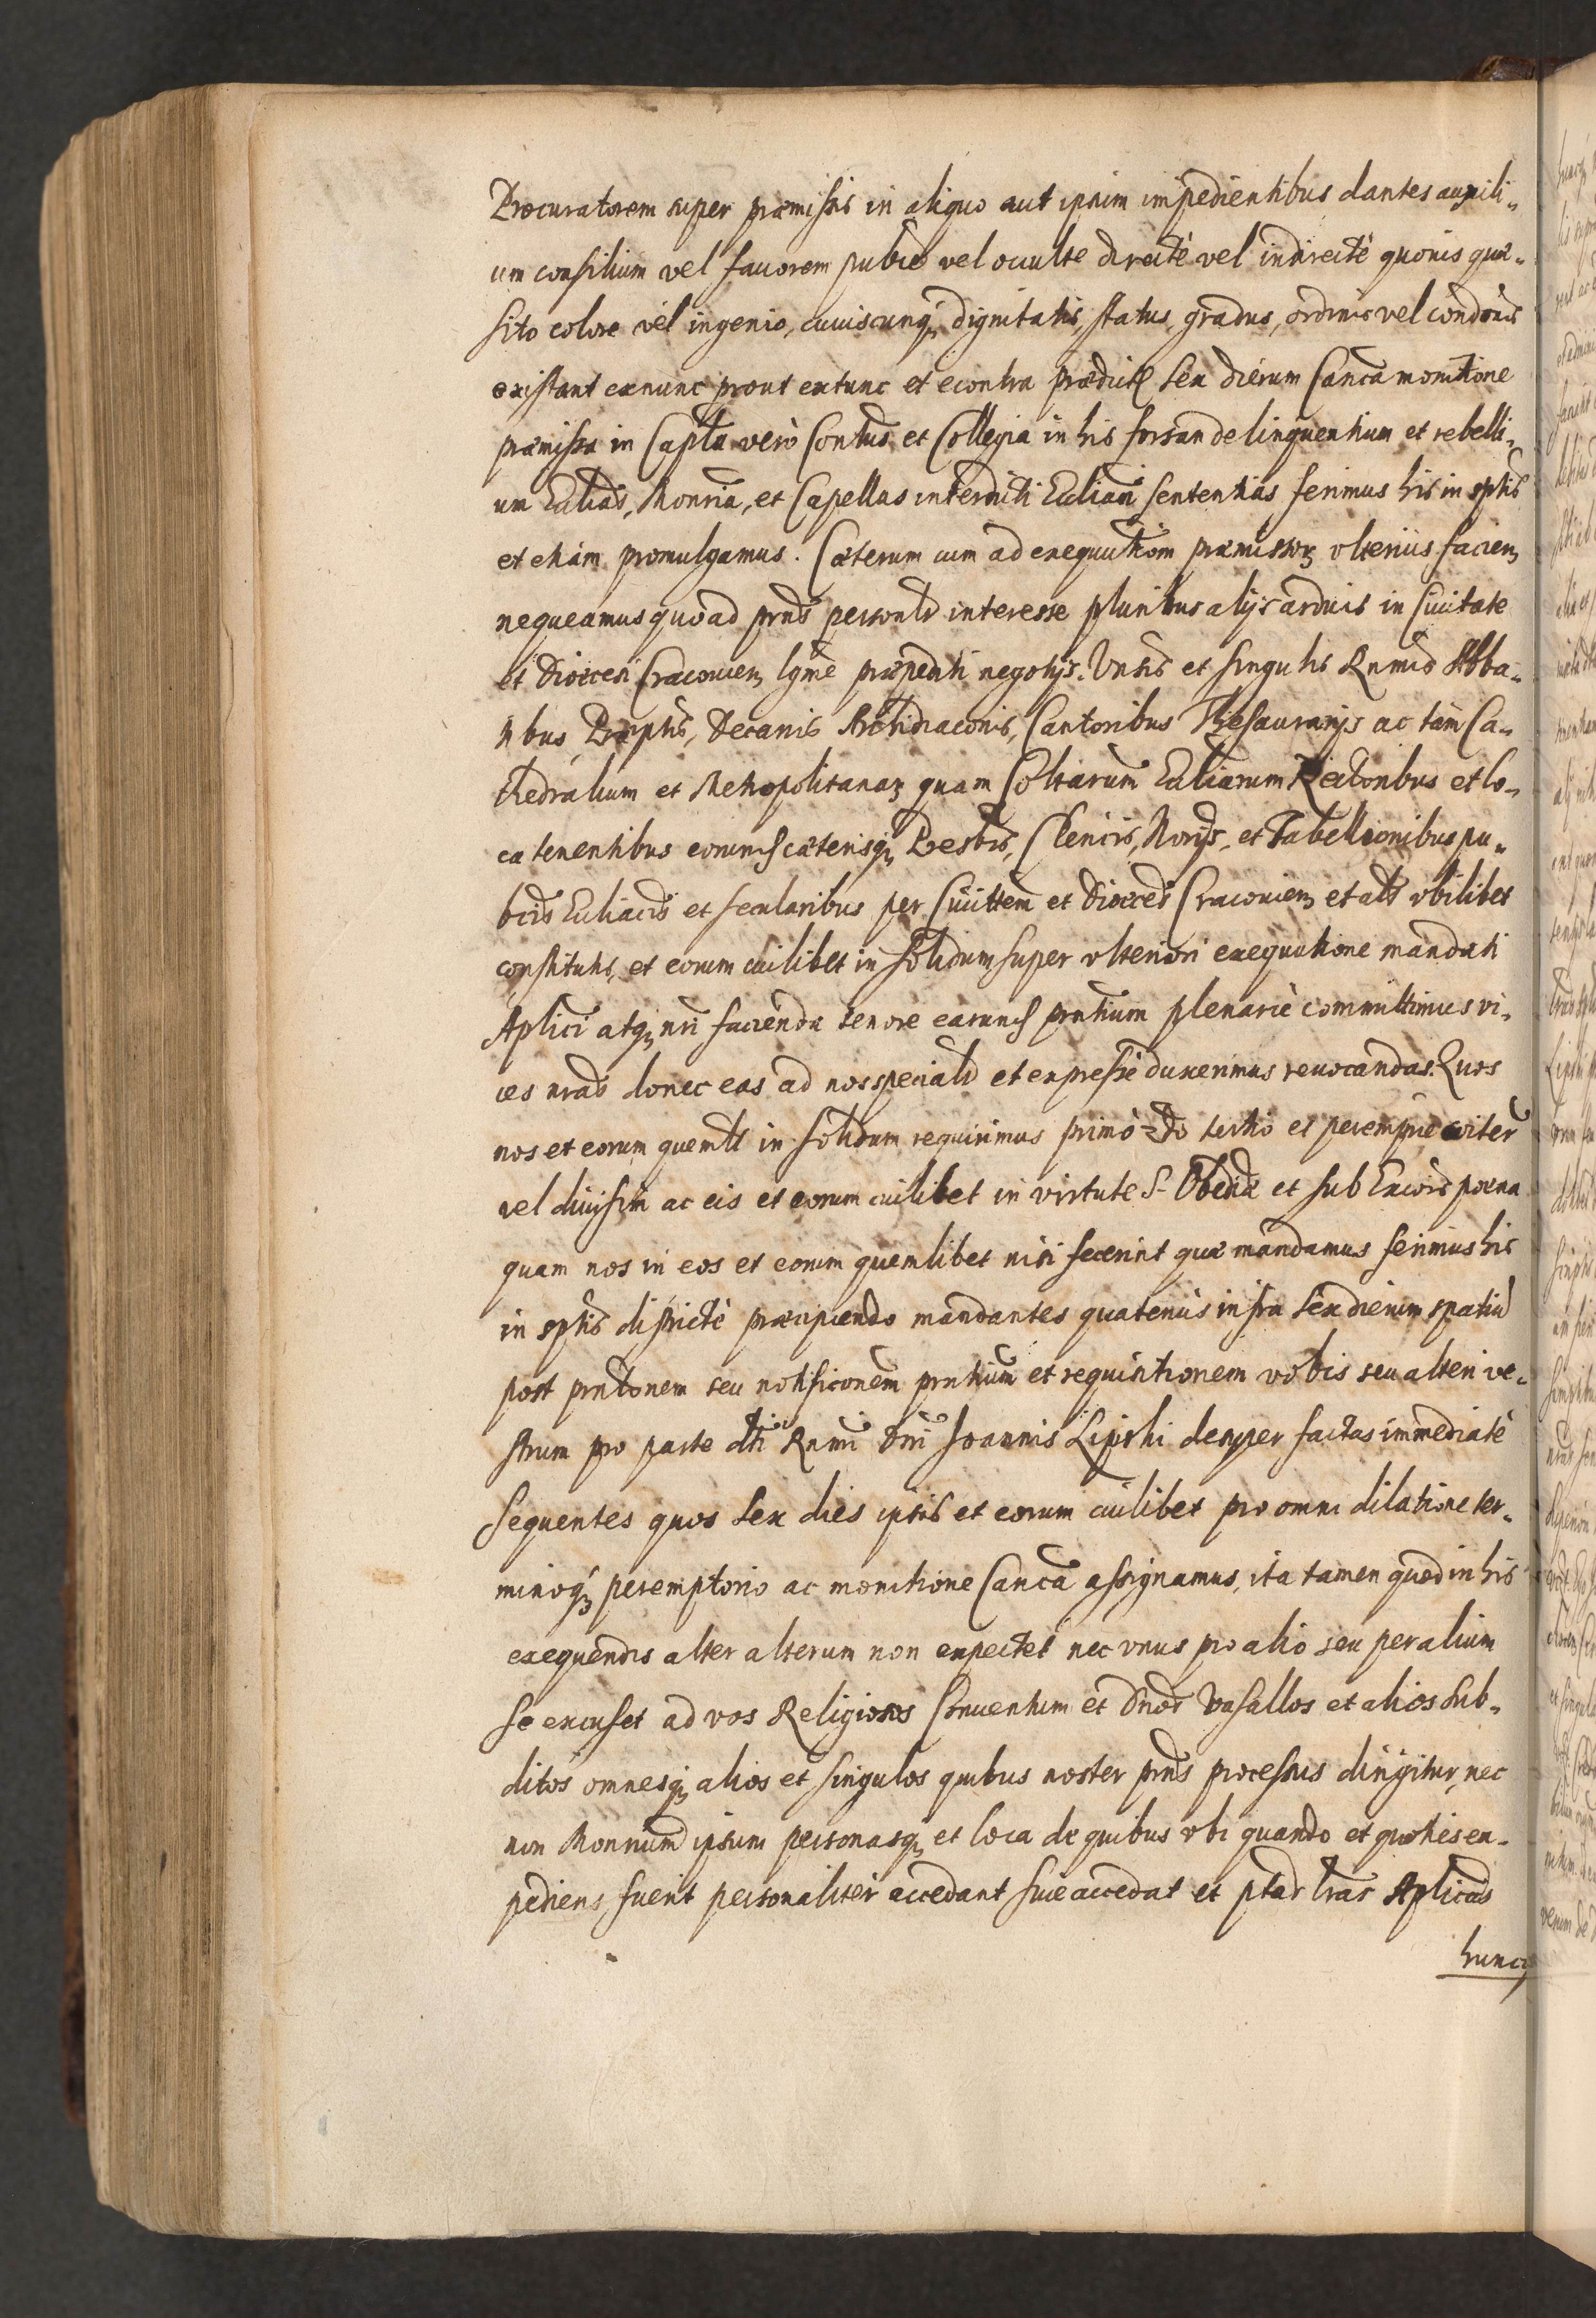 Procuratorem super præmissis in aliquo aut ipsum impedientibus dantes auxili„
um consilium vel fauorem publicè vel occulte directè vel indirectè quouis quæ„
sito colore vel ingenio, cuiuscunq; dignitatis, status, gradus, ordinis vel condonis
existant exnunc prout extunc et econtra prædicta sex dierum Canca monitione
præmissa in Capla verò Contus et Collegia in his forsan delinquentium et rebelli„
um Eccliās, Monria, et Capellas interdicti Eccliaci sententias ferimus his in sptis
et etiam promulgamus. Cæterum cum ad exequutiom præmissorz vlterius facien
nequeamus quoad prns personlr interesse pluribus alijs arduis in Ciuitate
et Diœcesi Cracouien lgme præpediti negotijs. Vnsis et singulis Rnmis Abba„
tibus, Præptis, Decanis Archidiaconis, Cantoribus Thesaurarijs ac tam Ca„
thedralium et Metropolitanarz quam Coltarum Eccliarum Rectoribus et lo„
ca tenentibus eorumd cæterisq; Presbris, Clericis, Norijs, et Tabellionibus pu„
bcis Eccliacis et secularibus per Ciuittem et Diœces Cracouien et alts vbilibet
constitutis, et eorum cuilibet in solidum super vlteriori exequutione mandati
Aplici atq; nri facienda tenore earund prntium plenariè committimus vi„
ces nras donec eas ad nos specialr et expressè duxerimus reuocandas. Quos
nos et eorum quemlt in solidum requirimus primò 2do tertio et peremptriè coiter
vel diuisim ac eis et eorum cuilibet in virtute S. Obedia et sub Excois pœna
quam nos in eos et eorum quemlibet nisi fecerint quæ mandamus ferimus his
in sptis districtè præcipiendo mandantes quatenus infra sex dierum spatiu
post prntonem seu notificonem prntium et requisitionem vobis seu alteri ve„
strum pro parte dti Rnmi Dni Joannis Lipski desuper factas immediatè
sequentes quos sex dies ipsis et eorum cuilibet pro omni dilatione ter„
minoq; peremptorio ac monitione Canca assignamus, ita tamen quod in his
exequendis alter alterum non expectet nec vnus pro alio seu per alium
se excuset ad vos Religiosos Conuentum et Dnos Vasallos et alios sub„
ditos omnesq; alios et singulos quibus noster prns processus dirigitur, nec
non Monrium ipsum personasq; et loca de quibus vbi quando et quoties ex„
pediens fuerit personaliter accedant siue accedat et ptas lras Aplicas
huncq;